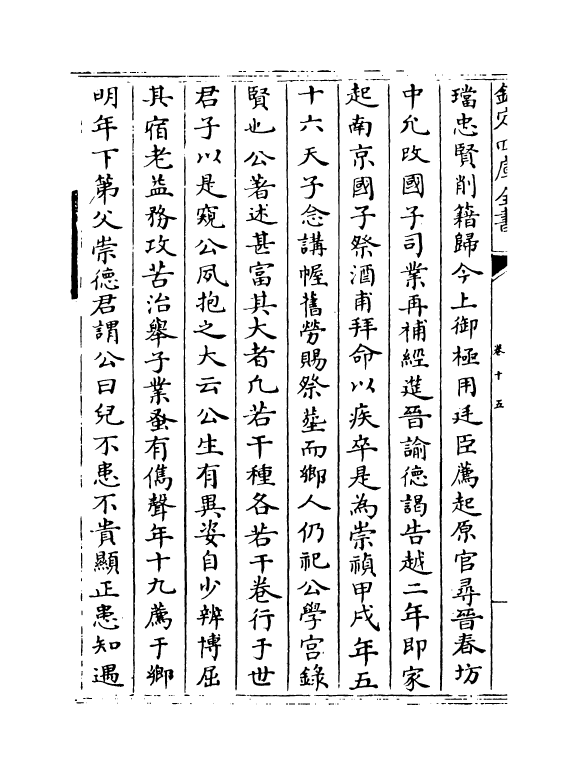 欽定四庫全書
卷十五
璫忠賢削籍歸今上御極用廷臣薦起原官尋晉春坊
中允改國子司業再補經筵晉諭德謁告越二年即家
起南京國子祭酒甫拜命以疾卒是為崇禎甲戌年五
十六天子念講幄舊勞賜祭塟而鄉人仍祀公學宮錄
賢也公著述甚富其大者凡若干種各若干卷行于世
君子以是窺公夙抱之大云公生有異姿自少辨博屈
其宿老益務攻苦治舉子業蚤有儁聲年十九薦于鄉
明年下第父崇德君謂公曰兒不患不貴顯正患知遇